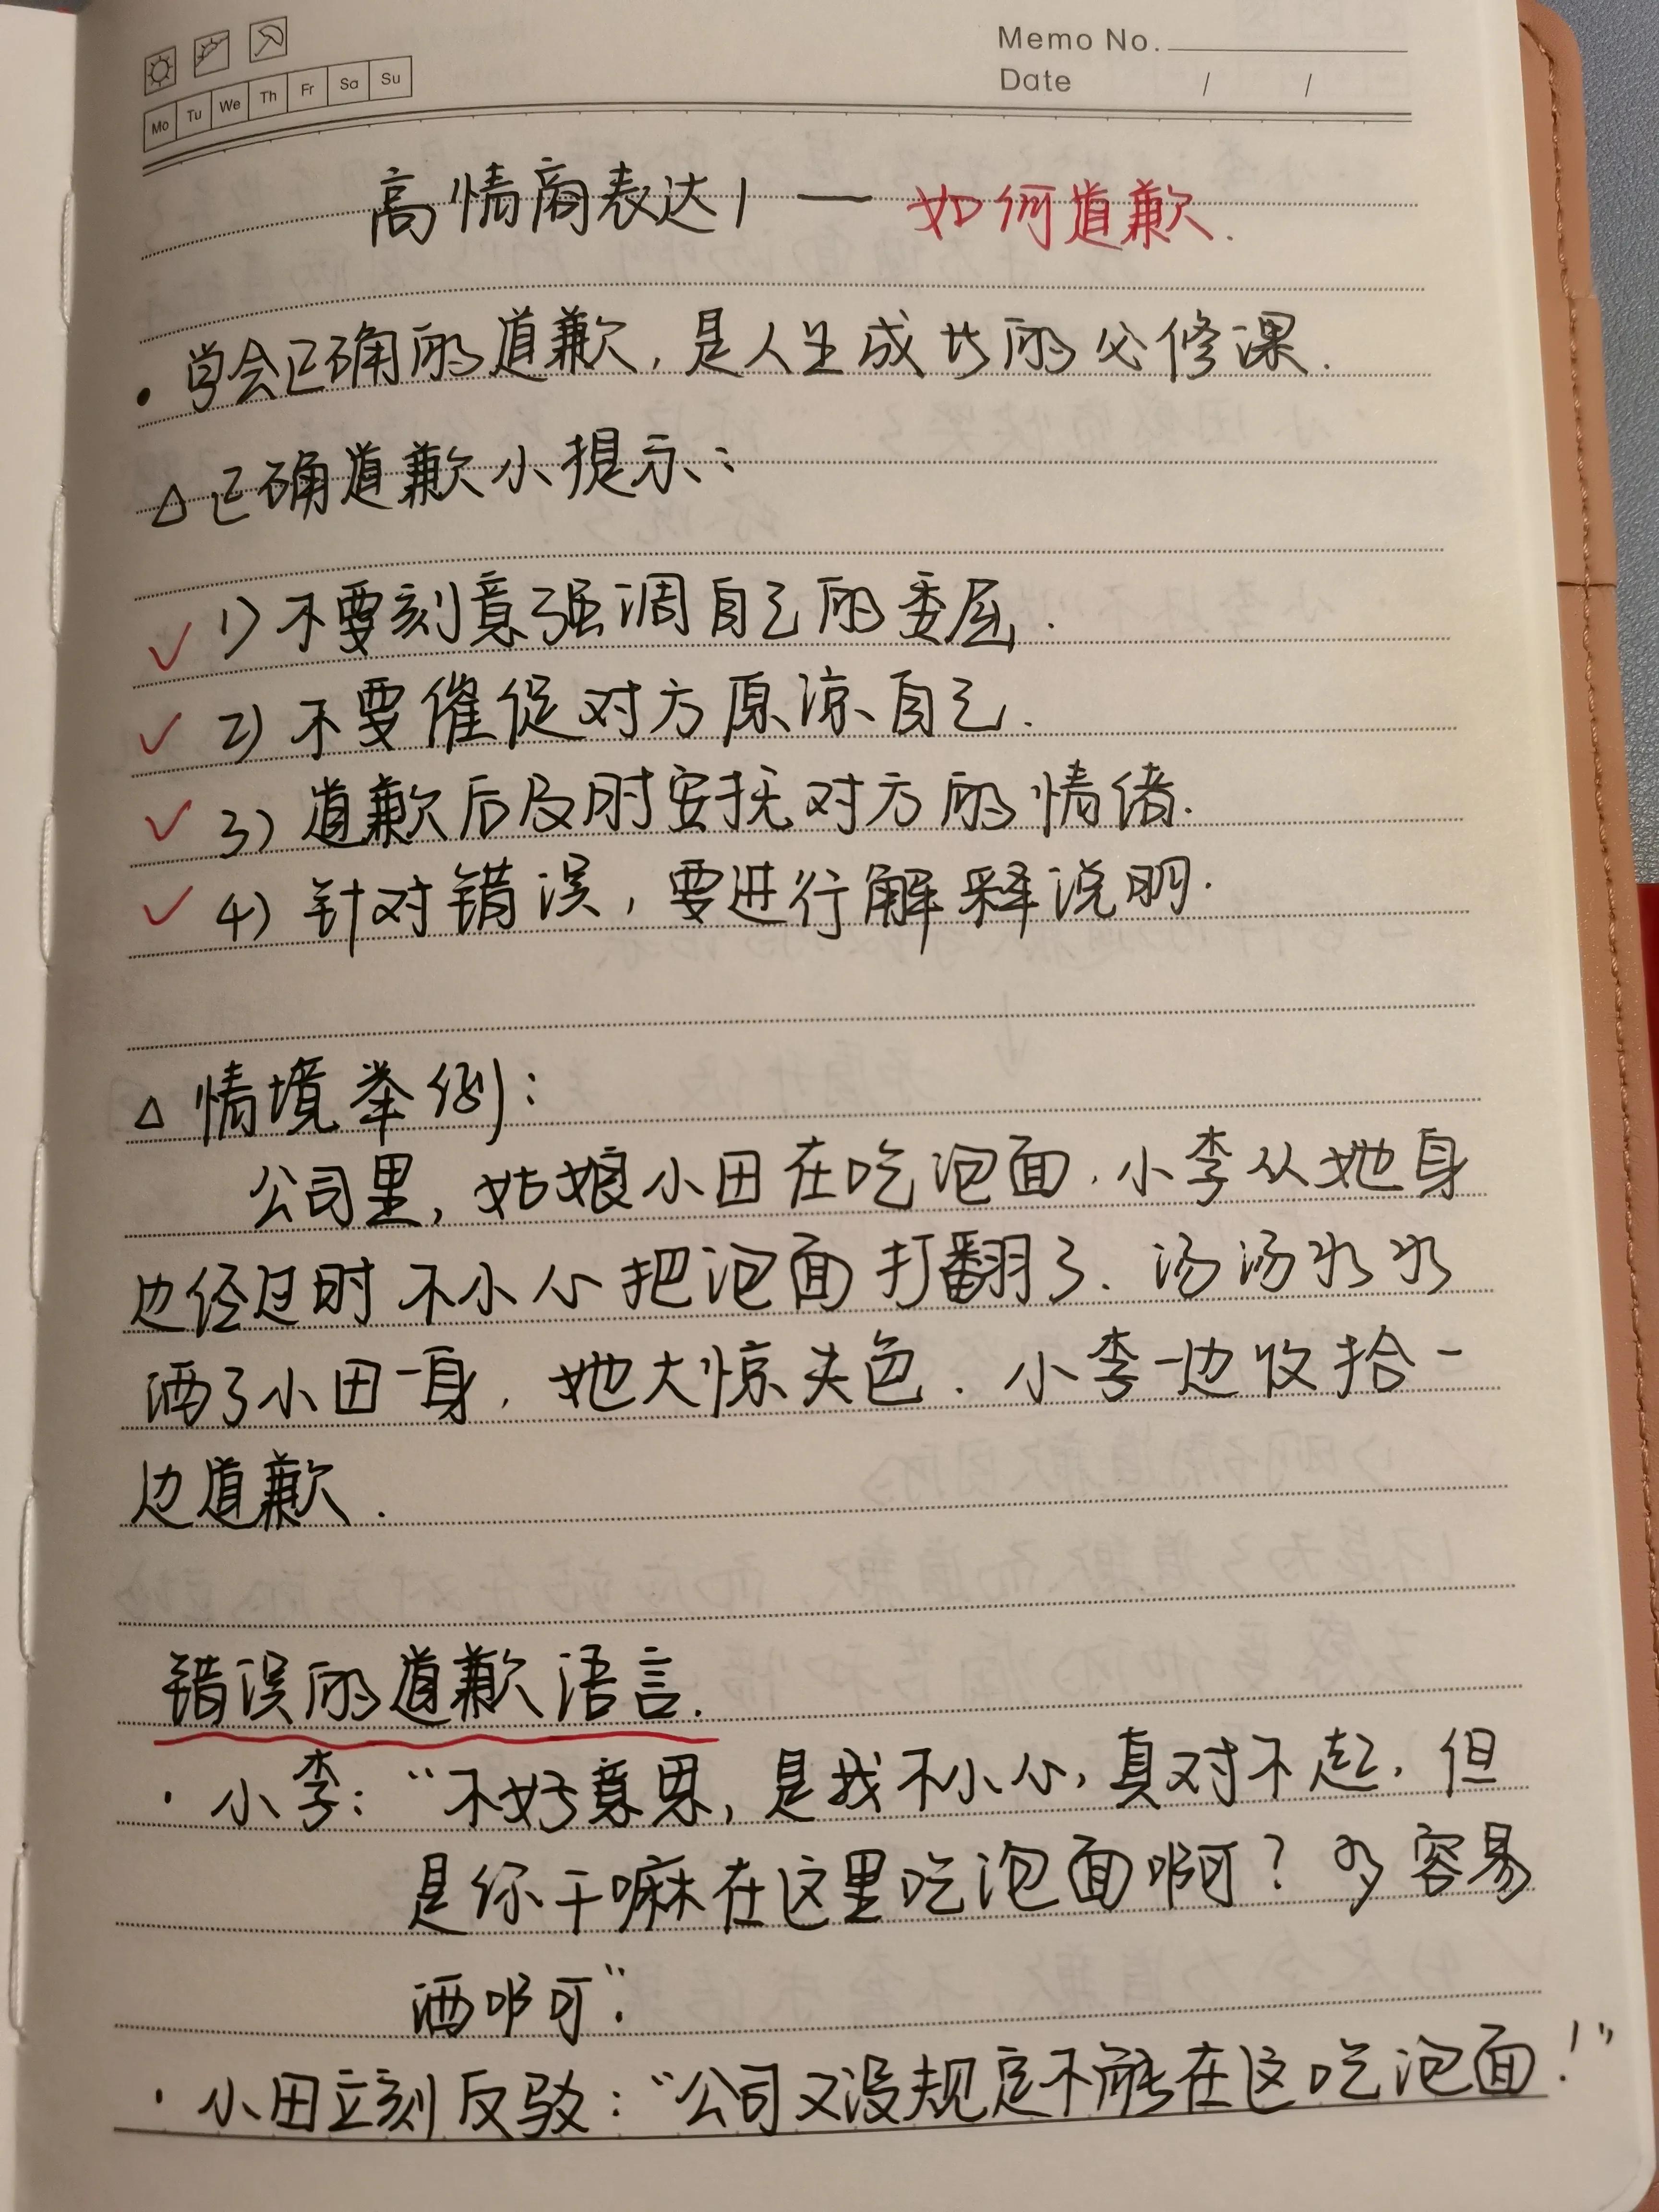 Memo No.
Mo Tu We Th Fr Sa Su
Date / /
高情商表达1 — 如何道歉.
• 学会正确的道歉, 是人生成长的必修课.
△正确道歉小提示:
✓ 1) 不要刻意强调自己的委屈.
✓ 2) 不要催促对方原谅自己.
✓ 3) 道歉后及时安抚对方的情绪.
✓ 4) 针对错误, 要进行解释说明.
△ 情境举例:
公司里, 姑娘小田在吃泡面. 小李从她身
边经过时不小心把泡面打翻了. 汤汤水水
洒了小田一身, 她大惊失色. 小李一边收拾一
边道歉.
错误的道歉语言.
· 小李: “不好意思, 是我不小心, 真对不起, 但
是你干嘛在这里吃泡面啊? 多容易
洒啊”.
· 小田立刻反驳: “公司又没规定不能在这吃泡面!”